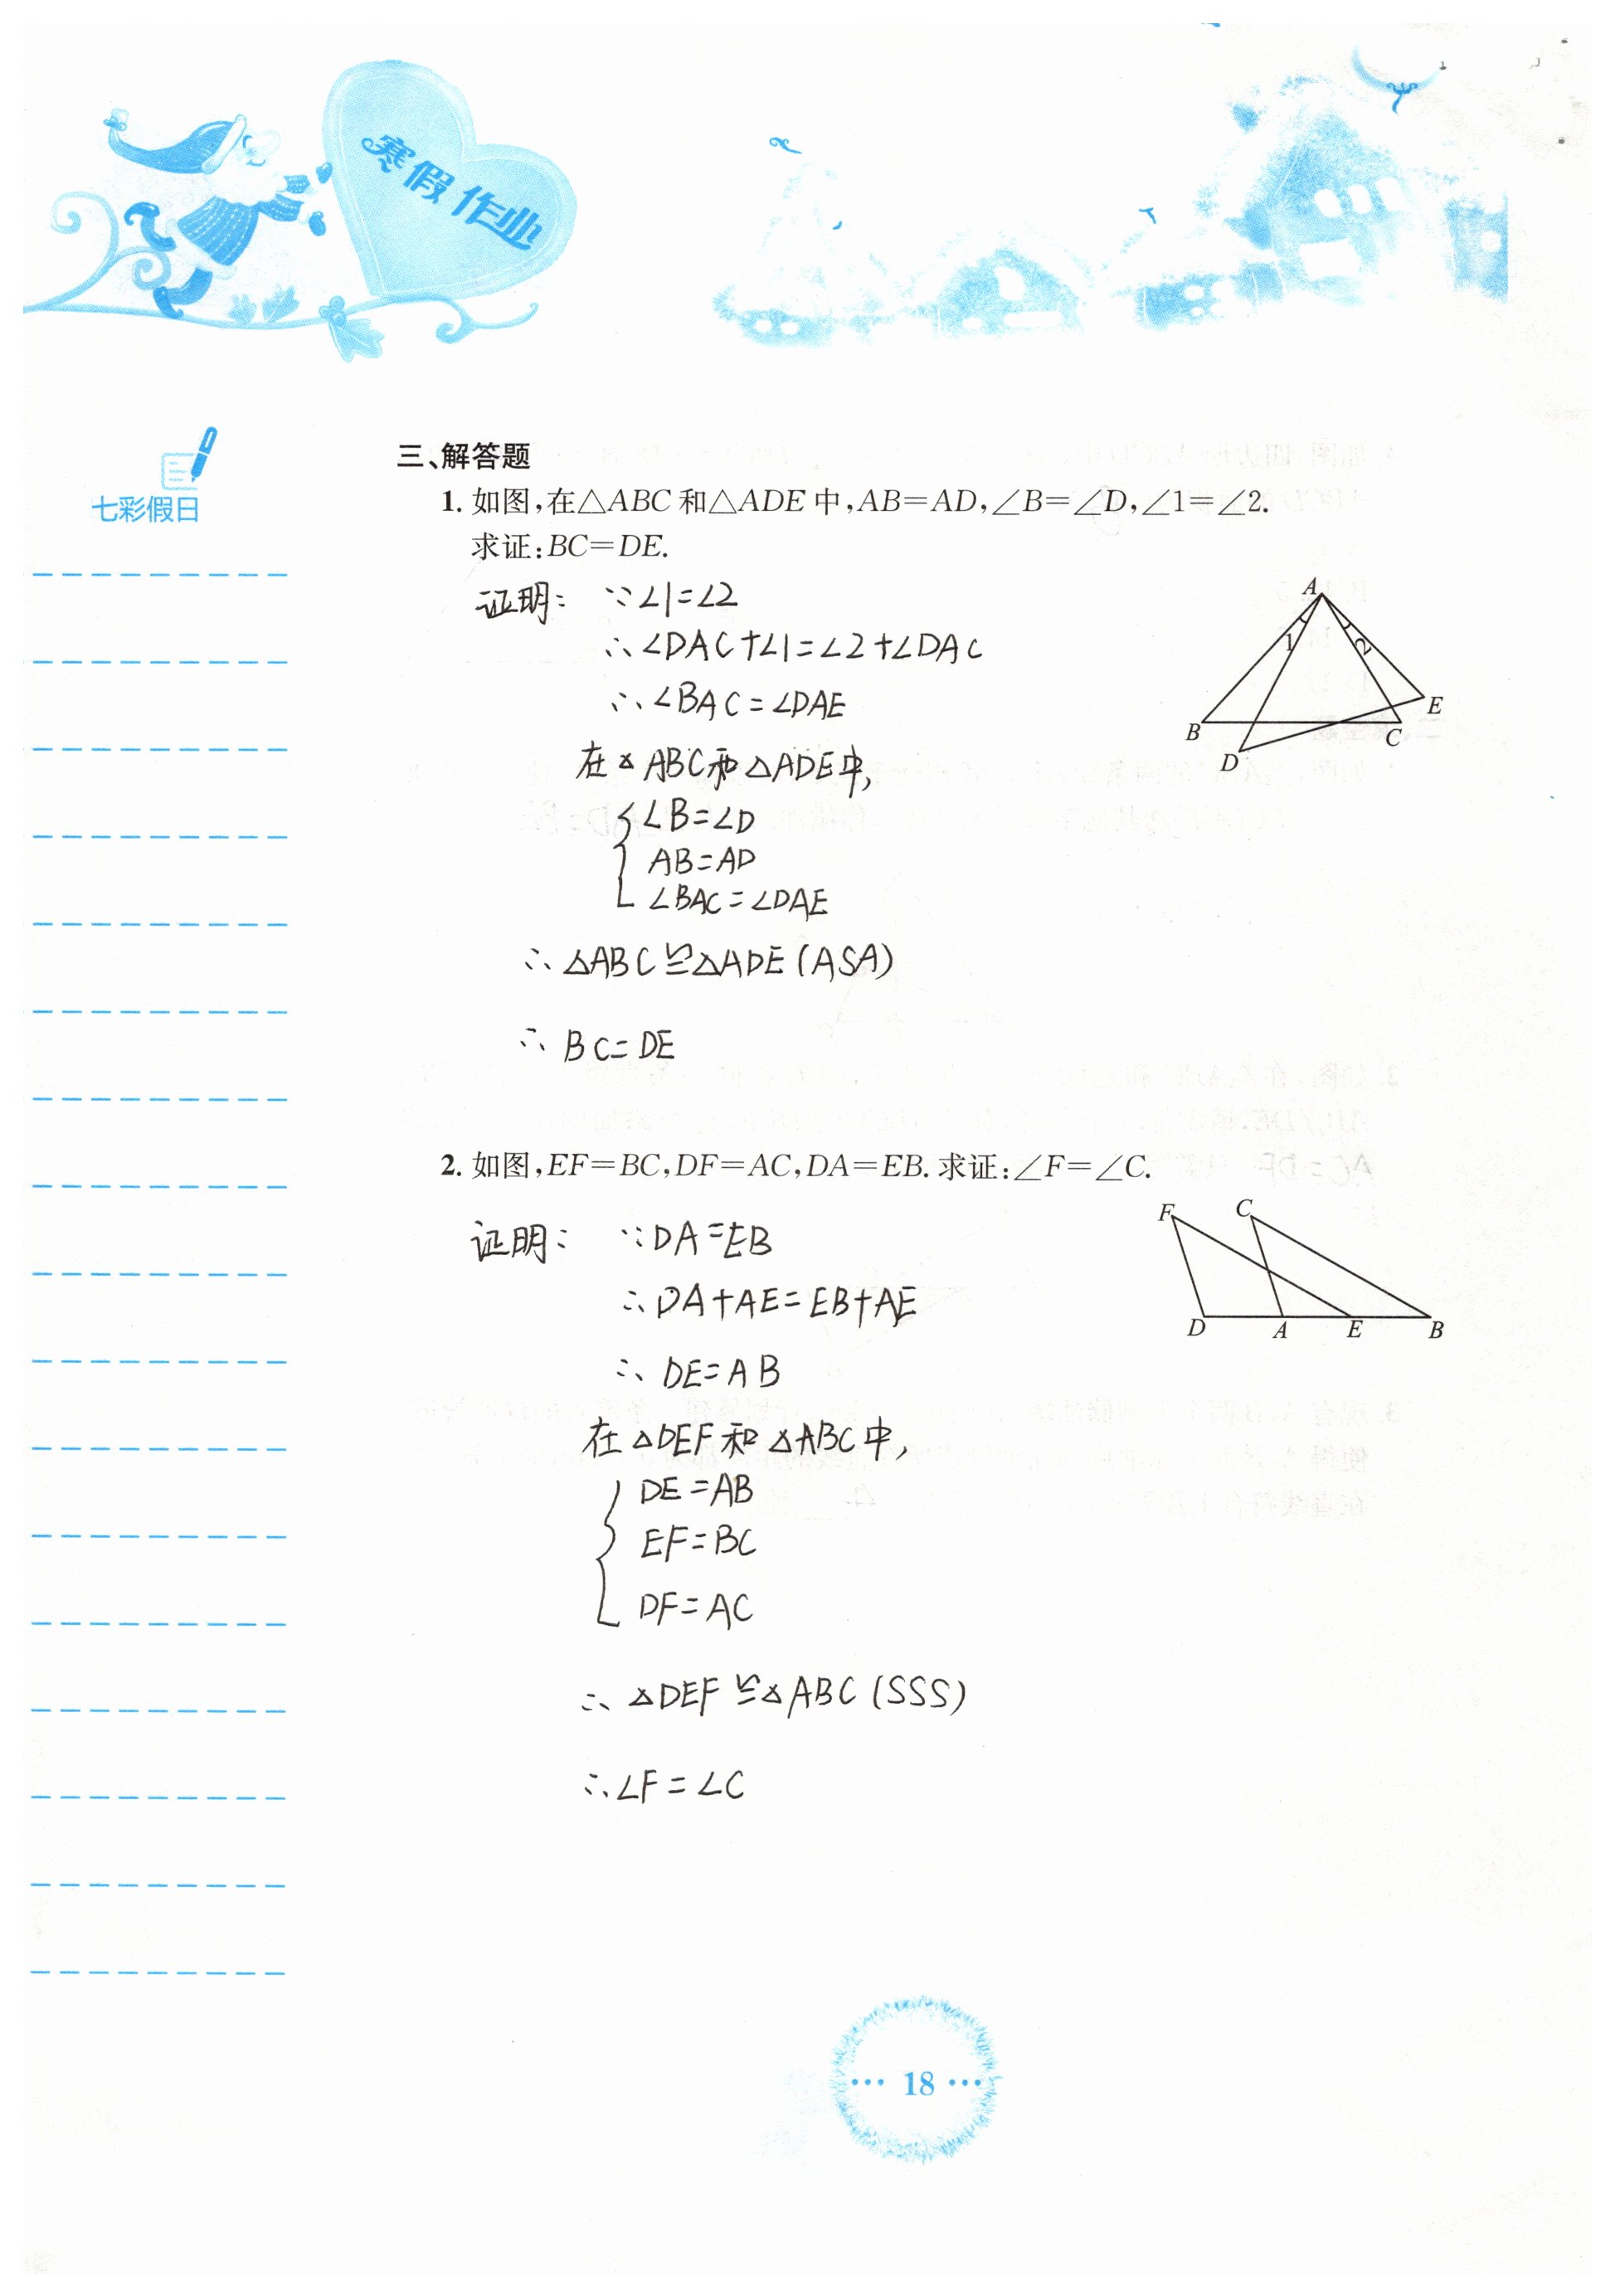 寒假作业
七彩假日
三、解答题
1. 如图,在△ABC和△ADE中,AB=AD,∠B=∠D,∠1=∠2.
求证:BC=DE.
证明: ∵∠1=∠2
∴∠DAC+∠1=∠2+∠DAC
∴∠BAC=∠DAE
在△ABC和△ADE中,
{∠B=∠D
AB=AD
∠BAC=∠DAE
∴△ABC≌△ADE(ASA)
∴BC=DE
A
1
2
B
C
E
D
2. 如图,EF=BC,DF=AC,DA=EB. 求证:∠F=∠C.
证明: ∵DA=EB
∴DA+AE=EB+AE
∴DE=AB
在△DEF和△ABC中,
{DE=AB
EF=BC
DF=AC
∴△DEF≌△ABC(SSS)
∴∠F=∠C
F
C
D
A
E
B
··· 18 ···